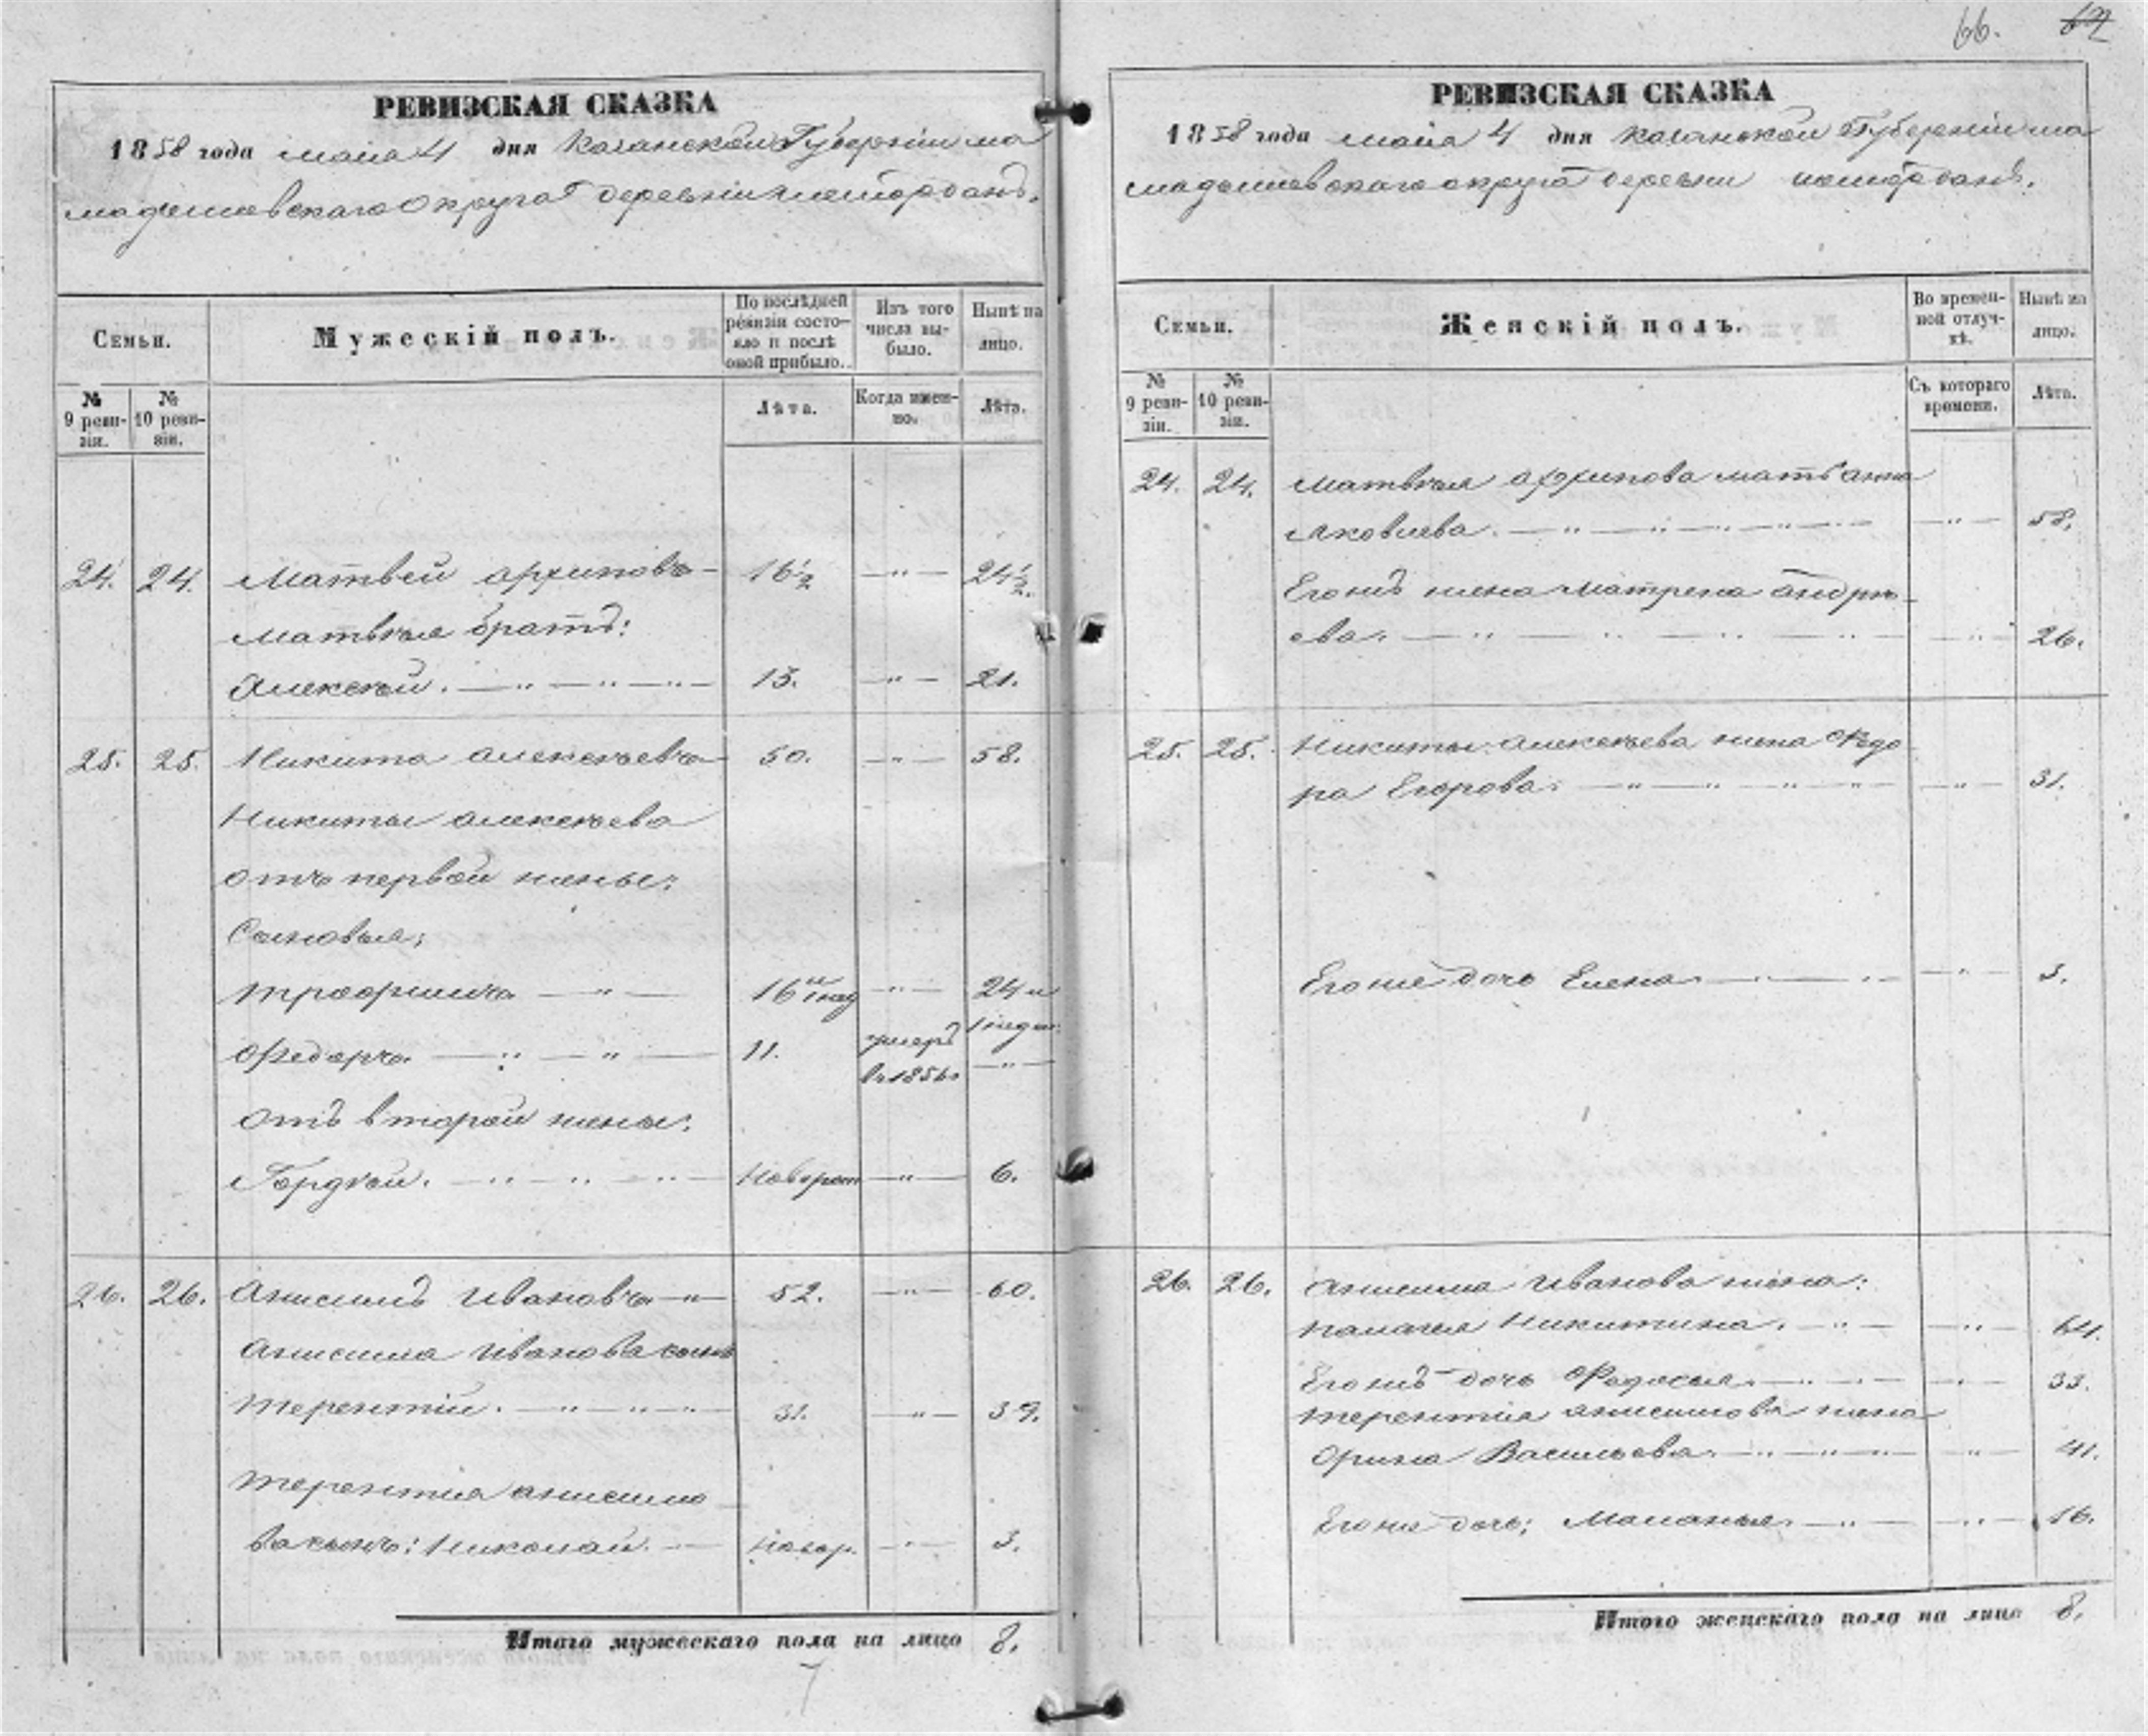 66. 67
РЕВИЗСКАЯ СКАЗКА
1858 года маия 4 дня Казанской Губернии ма
мадышевскаго округа деревни
Семьи.
Мужескій полъ.
По послѣдней ревизіи состо-
яло и послѣ оной прибыло.
Изъ того числа вы-
было.
Нынѣ на лицо.
№ 9 реви-
зіи.
№ 10 реви-
зіи.
Лѣта.
Когда имен-
но.
Лѣта.
24. 24. Матвей архиповъ 16½ —"— 24½.
Матвѣя братъ:
Алексѣй. 13. —"— 21.
25. 25. Никита алексѣевъ 50. —"— 58.
Никиты алексѣева
отъ первой жены:
Сыновья;
трофимъ —"— 16 и 1 нед —"— 24 и
1 недел.
Федоръ 11. умеръ
въ 1856 —"—
отъ второй жены:
Гордѣй. Новорож —"— 6.
26. 26. Анисимъ Ивановъ —"— 52. —"— 60.
Анисима Иванова сынъ
терентій. 31. —"— 39.
терентія анисимо
ва сынъ: Николай. новор. —"— 3.
Итого мужескаго пола на лицо 8.
7
РЕВИЗСКАЯ СКАЗКА
1858 года маия 4 дня Казанской Губернии ма
мадышевскаго округа деревни
Семьи.
Женскій полъ.
Во времен-
ной отлуч-
кѣ.
Нынѣ на лицо.
№ 9 реви-
зіи.
№ 10 реви-
зіи.
Съ котораго времени.
Лѣта.
24. 24. Матвѣя архипова мать анна
Яковлева. —"— 58.
Его жъ жена Матрена андрѣ-
ева. —"— 26.
25. 25. Никиты алексѣева жена Федо
ра Егорова. —"— 31.
Его же дочь Елена —"— 3.
26. 26. Анисима Иванова жена:
палагея Никитина. —"— 64.
Его жъ дочь Федосья. —"— 33.
терентія анисимова жена
Орина Васильева. —"— 41.
Его же дочь; Маланья. —"— 16.
Итого женскаго пола на лицо 8.